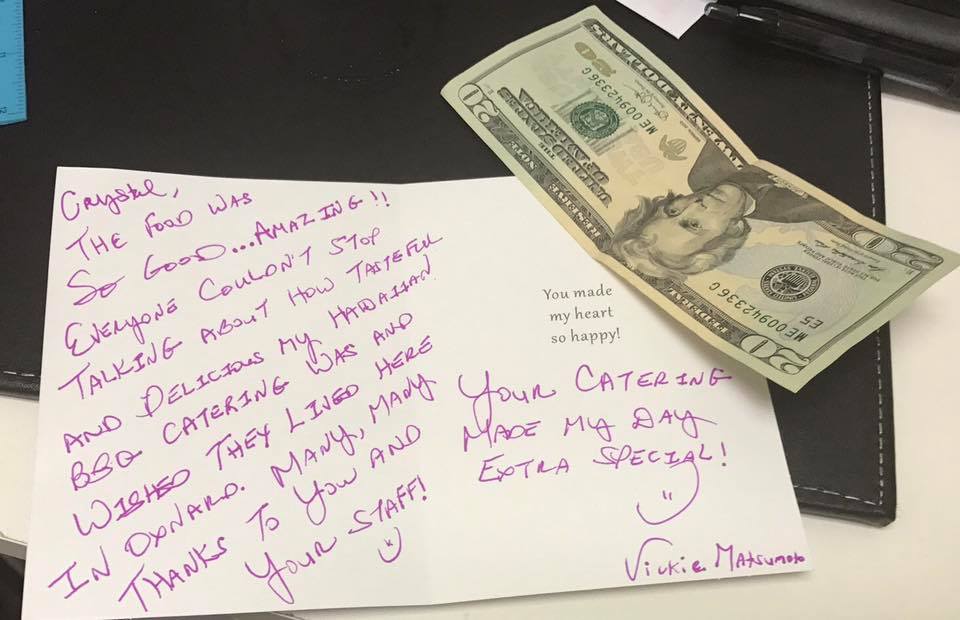 Crystal,
THE FOOD WAS
SO GOOD...AMAZING!!
EVERYONE COULDN'T STOP
TALKING ABOUT HOW TASTEFUL
AND DELICIOUS MY HAWAIIAN
BBQ CATERING WAS AND
WISHED THEY LIVED HERE
IN OXNARD. MANY, MANY
THANKS TO YOU AND
YOUR STAFF!
You made
my heart
so happy!
YOUR CATERING
MADE MY DAY
EXTRA SPECIAL!
Vickie Matsumoto
FEDERAL RESERVE NOTE
THE
UNITED STATES
OF AMERICA
ME 00942336 G
ME 00942336 G
E5
20
20
20
TWENTY DOLLARS